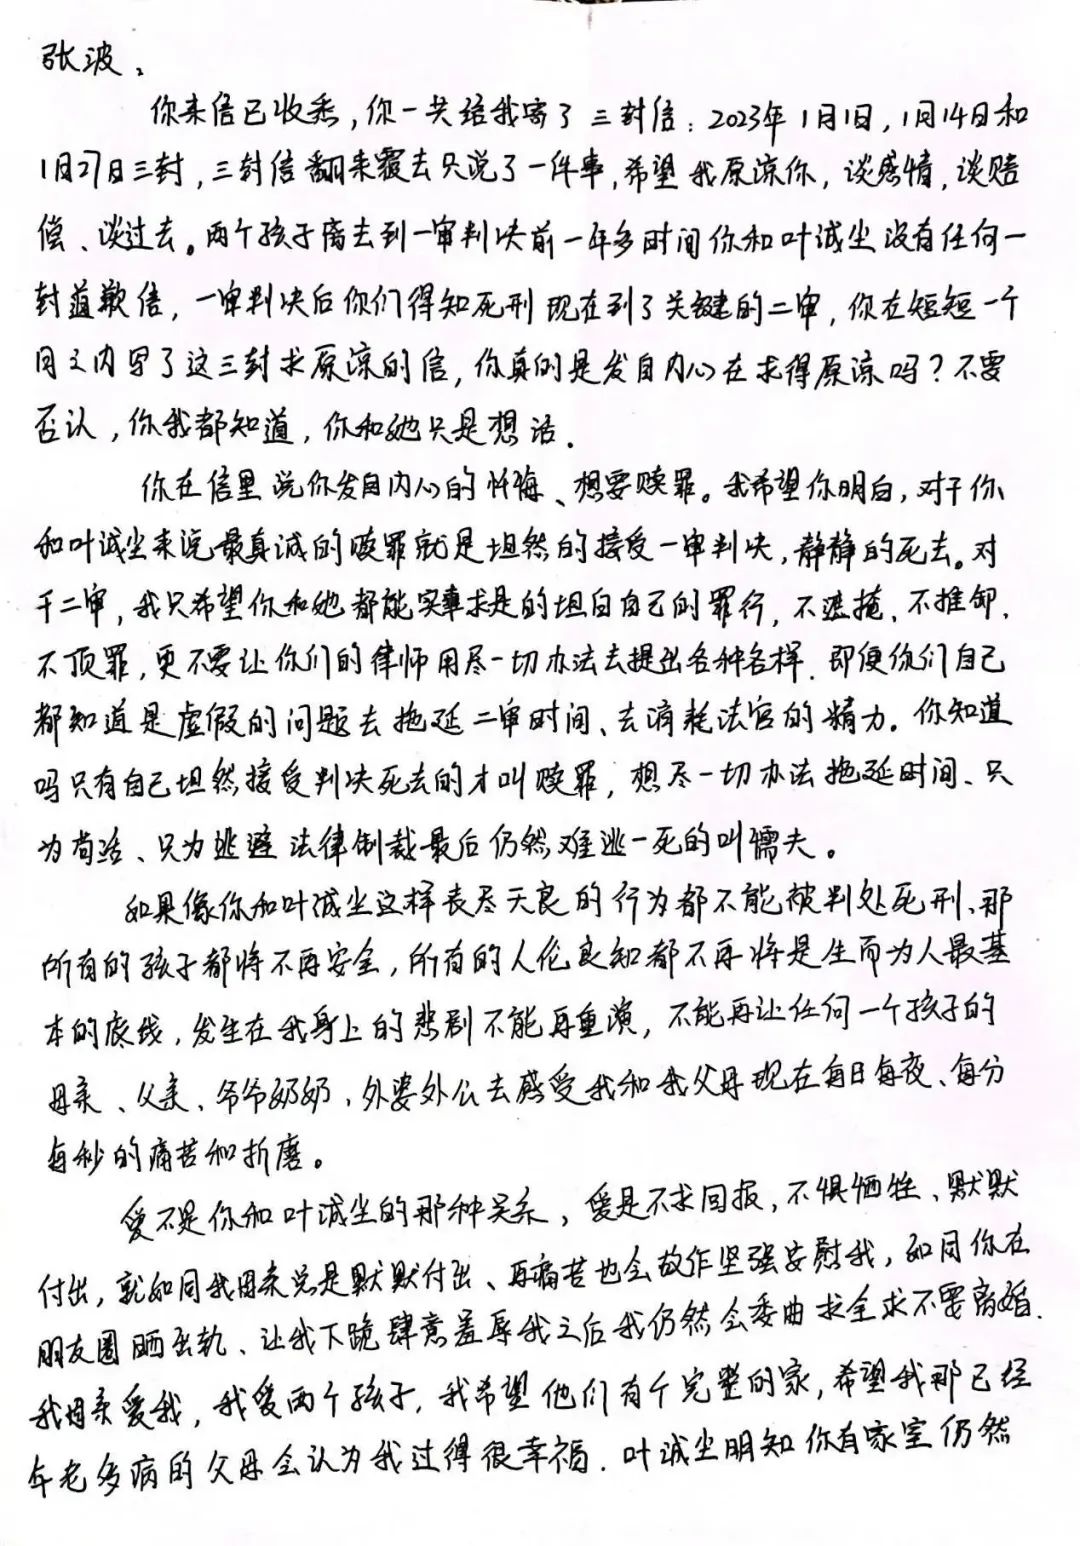 张波、
你来信已收悉，你一共给我寄了三封信：2023年1月1日，1月14日和
1月27日三封，三封信翻来覆去只说了一件事，希望我原谅你，谈感情，谈赔
偿、谈过去。两个孩子离去到一审判决前一年多时间你和叶诚尘没有任何一
封道歉信，一审判决后你们得知死刑现在到了关键的二审，你在短短一个
月之内写了这三封求原谅的信，你真的是发自内心在求得原谅吗？不要
否认，你我都知道，你和她只是想活．
你在信里说你发自内心的忏悔、想要赎罪。我希望你明白，对于你
和叶诚尘来说最真诚的赎罪就是坦然的接受一审判决，静静的死去。对
于二审，我只希望你和她都能实事求是的坦白自己的罪行，不遮掩、不推卸、
不顶罪，更不要让你们的律师用尽一切办法去提出各种各样、即便你们自己
都知道是虚假的问题去拖延二审时间、去消耗法官的精力。你知道
吗只有自己坦然接受判决死去的才叫赎罪，想尽一切办法拖延时间、只
为苟活、只为逃避法律制裁最后仍然难逃一死的叫懦夫。
如果像你和叶诚尘这样丧尽天良的行为都不能被判处死刑、那
所有的孩子都将不再安全，所有的人伦良知都不再将是生而为人最基
本的底线，发生在我身上的悲剧不能再重演，不能再让任何一个孩子的
母亲、父亲、爷爷奶奶、外婆外公去感受我和我父母现在每日每夜、每分
每秒的痛苦和折磨。
爱不是你和叶诚尘的那种关系，爱是不求回报，不惧牺牲、默默
付出，就如同我母亲总是默默付出、再痛苦也会故作坚强安慰我，如同你在
朋友圈晒出轨、让我下跪肆意羞辱我之后我仍然会委曲求全求不要离婚．
我母亲爱我，我爱两个孩子，我希望他们有个完整的家，希望我那已经
年老多病的父母会认为我过得很幸福．叶诚尘明知你有家室仍然